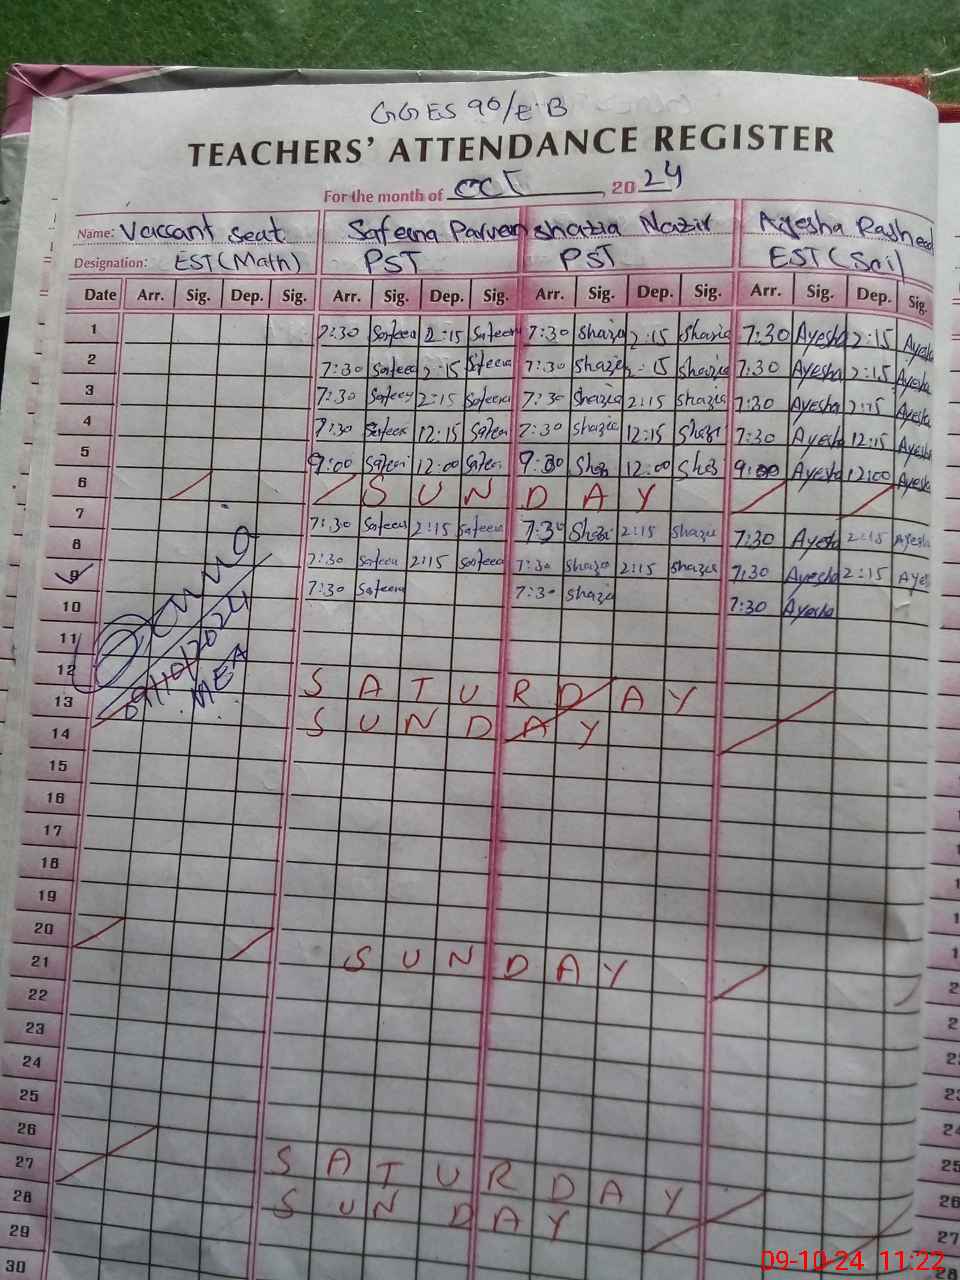 GGES 90/E.B
TEACHERS' ATTENDANCE REGISTER
For the month of OCT, 20 24
Name: Vaccant Seat Safeena Parveen Shazia Nazir Ayesha Rasheed
Designation: EST (Math) PST PST EST (Sci)
Date Arr. Sig. Dep. Sig. Arr. Sig. Dep. Sig. Arr. Sig. Dep. Sig. Arr. Sig. Dep. Sig.
1 7:30 Safeen 2:15 Safeen 7:30 Shazia 2:15 Shazia 7:30 Ayesha 2:15 Ayesha
2 7:30 Safeen 2:15 Safeena 7:30 Shazia 2:15 Shazia 7:30 Ayesha 2:15 Ayesha
3 7:30 Safeen 2:15 Safeena 7:30 Shazia 2:15 Shazia 7:30 Ayesha 2:15 Ayesha
4 7:30 Safeen 12:15 Safeen 7:30 Shazia 12:15 Shazi 7:30 Ayesha 12:15 Ayesha
5 9:00 Safeen 12:00 Safeen 9:00 12:00 9:00 Ayesha 12:00 Ayesha
6 SUNDAY
7 7:30 Safeen 2:15 Safeena 7:30 Shazi 2:15 Shazia 7:30 Ayesha 2:15 Ayesha
8 7:30 Safeena 2:15 Safeena 7:30 Shazia 2:15 Shazia 7:30 Ayesha 2:15 Aye
9 7:30 Safeena 7:30 Shazia 7:30 Ayesha
10
11
09/10/2024
MEA
12 SATURDAY
13 SUNDAY
14
15
16
17
18
19
20 SUNDAY
21
22
23
24
25
26 SATURDAY
27 SUNDAY
28
29
30
09-10-24 11:22